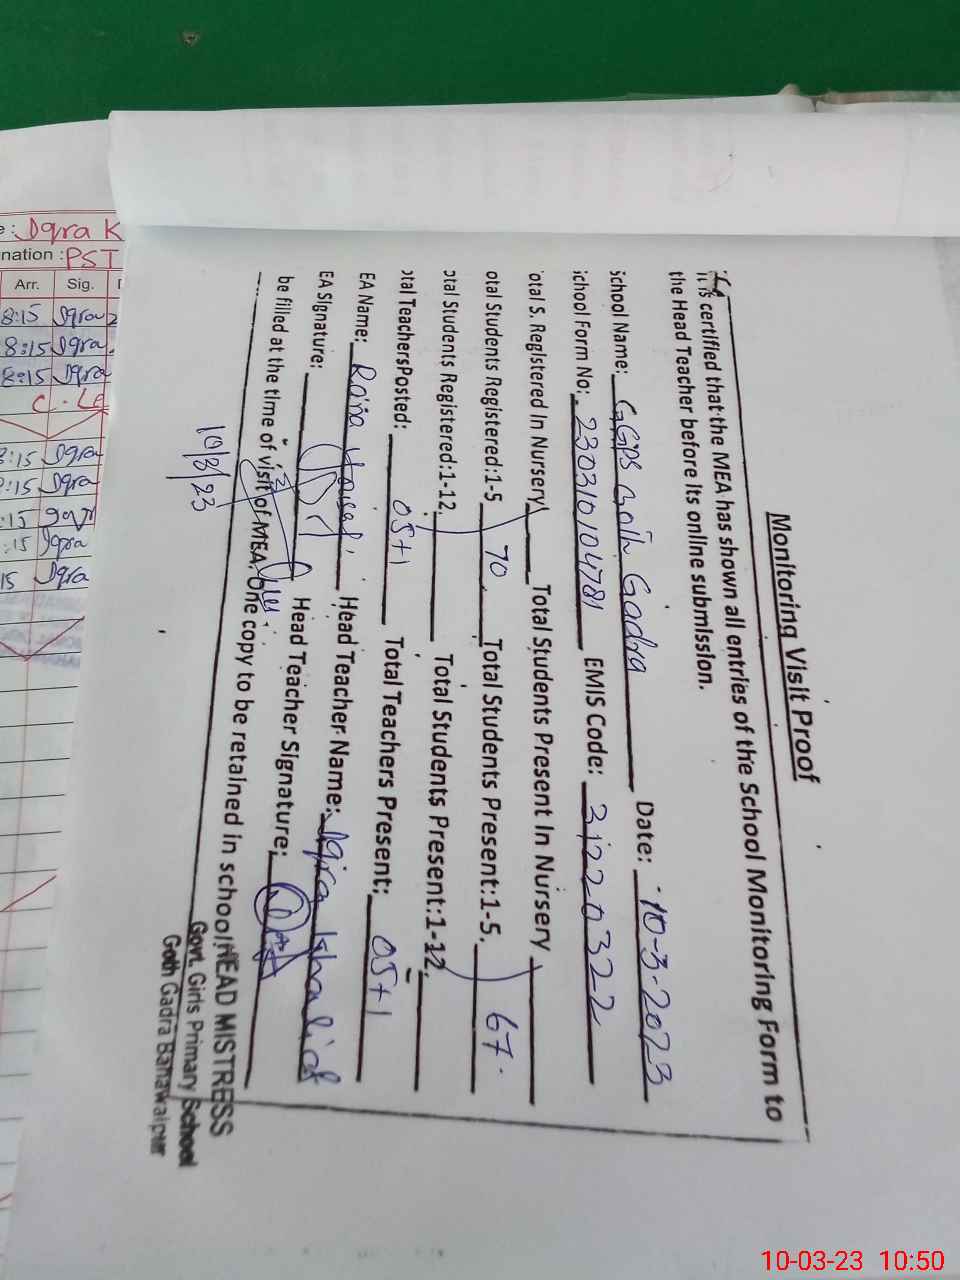 Monitoring Visit Proof
It is certified that the MEA has shown all entries of the School Monitoring Form to
the Head Teacher before its online submission.
School Name: GGPS Goth Gadra Date: 10-3-2023
School Form No: 230310104781 EMIS Code: 31220322
otal S. Registered In Nursery Total Students Present In Nursery
otal Students Registered:1-5 70 Total Students Present:1-5. 67.
otal Students Registered:1-12. Total Students Present:1-12.
otal TeachersPosted: 05+1 Total Teachers Present: 05+1
EA Name: Rana Yousaf. Head Teacher Name: Iqra Khalid
EA Signature: Head Teacher Signature:
be filled at the time of visit of MEA, One copy to be retained in school
10/3/23
HEAD MISTRESS
Govt. Girls Primary School
Goth Gadra Bahawalpur
e : Iqra K
nation : PST
Arr. Sig.
8:15 Iqra
8:15 Iqra
8:15 Iqra
C. Le
8:15 Iqra
:15 Iqra
:15 Iqra
:15 Iqra
15 Iqra
10-03-23 10:50